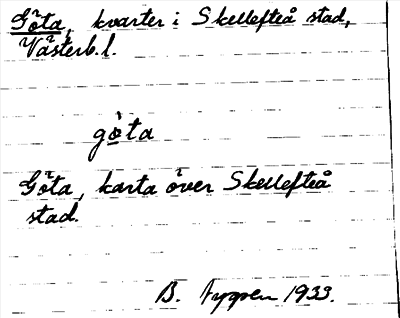 Göta, kvarter i Skellefteå stad,
Västerb.l.
gö̀ta
Göta, karta över Skellefteå
stad.
B. 1933.